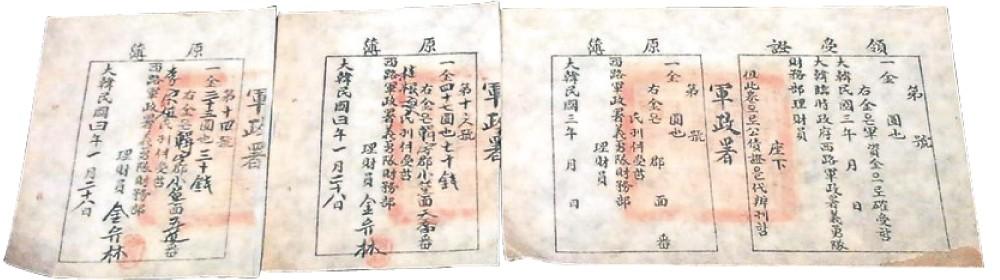 領受證
第 號
一金 圓也
右金은軍資金으로確受함
大韓民國三年 月 日
大韓臨時政府西路軍政署義勇隊
財務部理財員
座下
但此票으로公債證은代辦
軍政署
原簿
第 號
一金 圓也
右金은 郡 面 番
氏 件受함
西路軍政署義勇隊財務部
理財員
大韓民國三年 月 日
軍政署
原簿
第十 號
一金四十七圓七十錢
右金은 郡小 面 番
氏 件受함
西路軍政署義勇隊財務部
理財員 金 林
大韓民國四年一月二十八日
軍政署
原簿
第十四號
一金二十三圓也三十錢
右金은 郡小 面 番
李 氏 件受함
西路軍政署義勇隊財務部
理財員 金 林
大韓民國四年一月二十八日